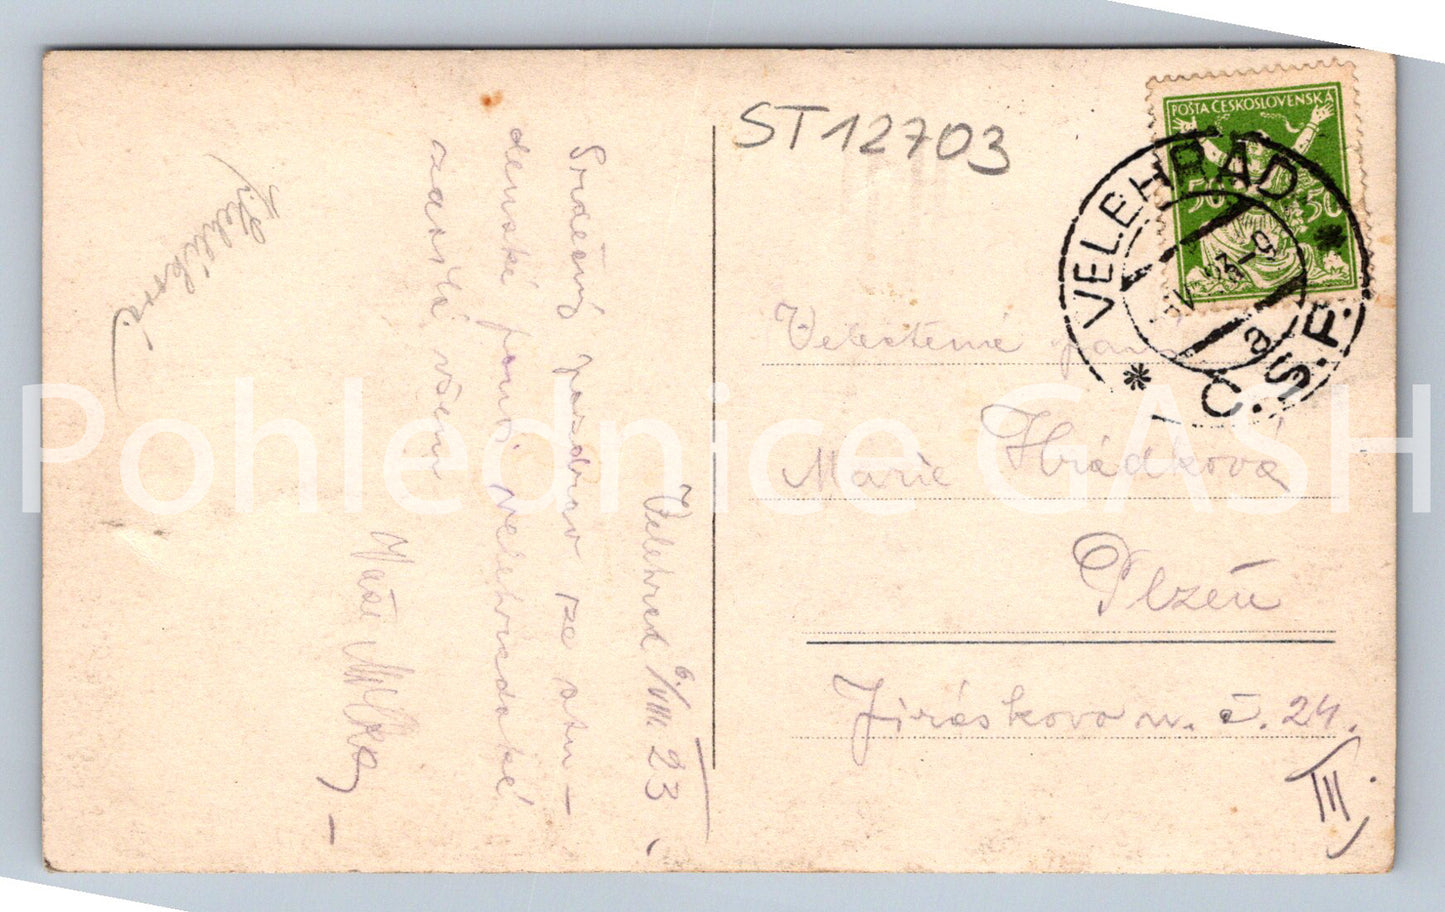 ST12703
POŠTA ČESKOSLOVENSKÁ
50 50
VELEHRAD
Č.S.P.
a
Velectěná paní
Marie Hrádková
Plzeň
Jiráskovo n. č. 24.
III
Velehrad 6./VIII 23
Srdečný pozdrav ze stu-
denské pouti velehradské
všem
Pohlednice GASH